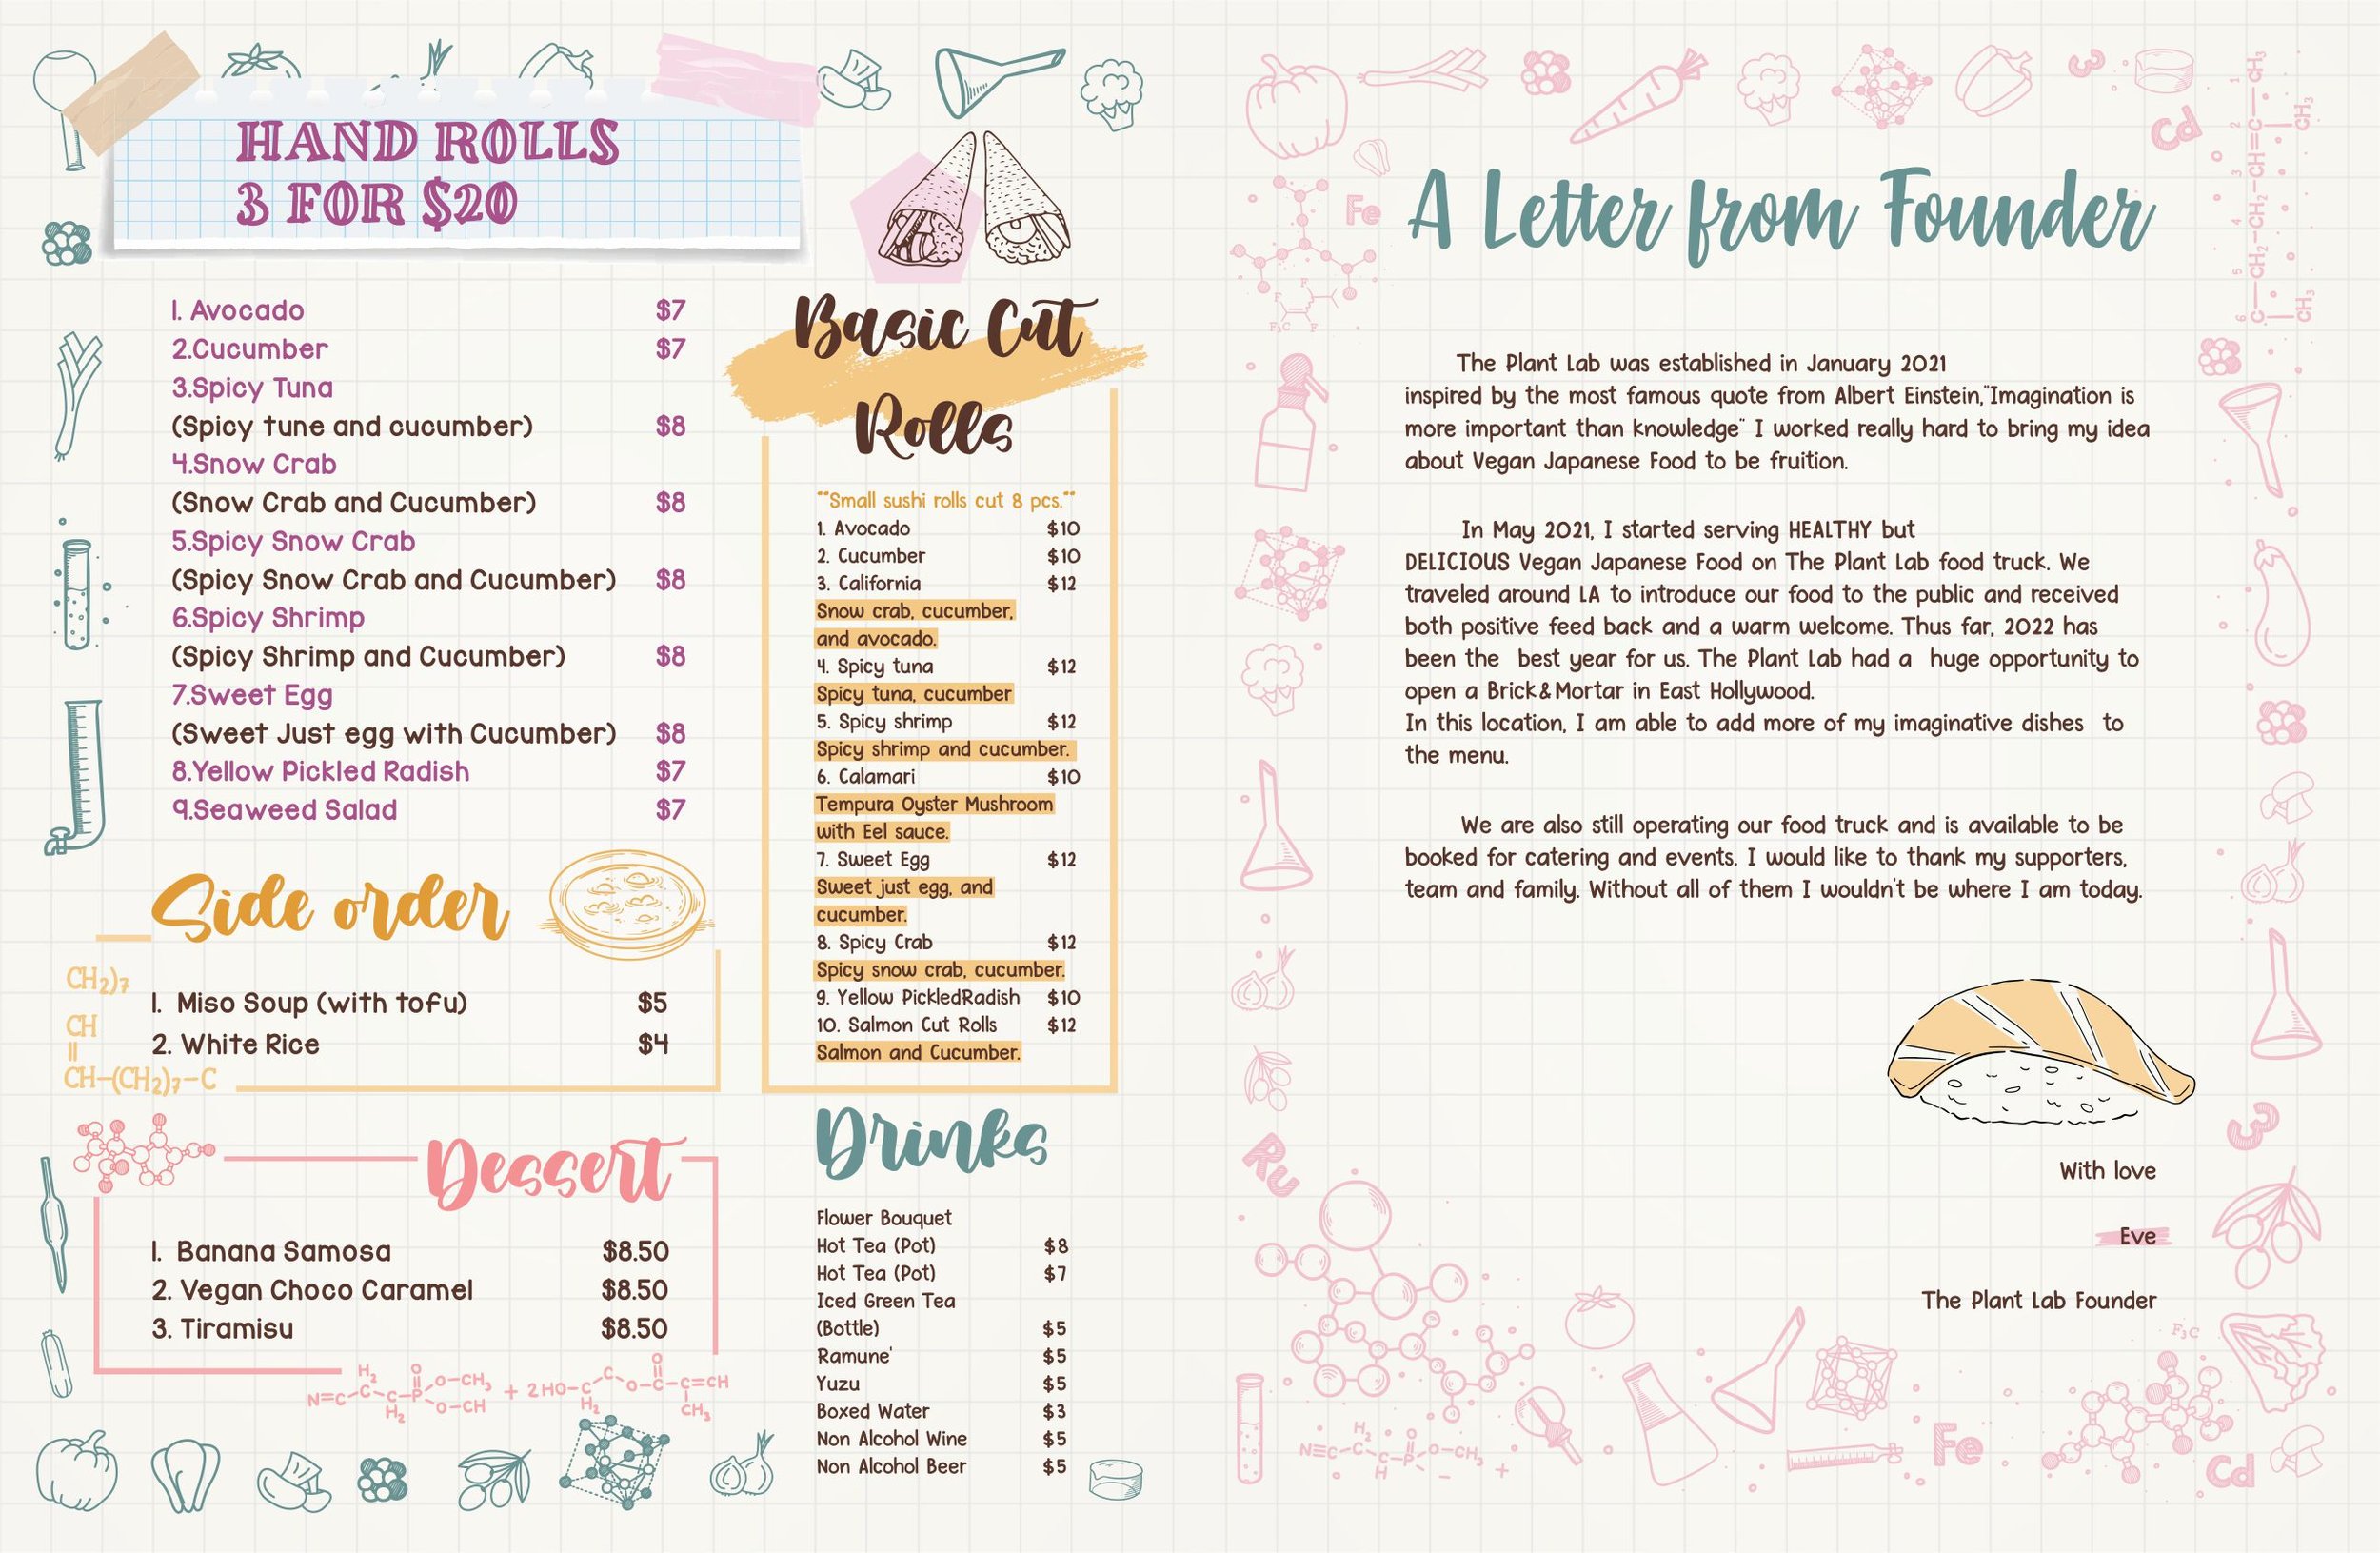 HAND ROLLS
3 FOR $20
1. Avocado $7
2.Cucumber $7
3.Spicy Tuna
(Spicy tune and cucumber) $8
4.Snow Crab
(Snow Crab and Cucumber) $8
5.Spicy Snow Crab
(Spicy Snow Crab and Cucumber) $8
6.Spicy Shrimp
(Spicy Shrimp and Cucumber) $8
7.Sweet Egg
(Sweet Just egg with Cucumber) $8
8.Yellow Pickled Radish $7
9.Seaweed Salad $7
Side order
CH₂)₇
1. Miso Soup (with tofu) $5
CH
2. White Rice $4
CH-(CH₂)₇-C
Dessert
1. Banana Samosa $8.50
2. Vegan Choco Caramel $8.50
3. Tiramisu $8.50
Basic Cut
Rolls
"Small sushi rolls cut 8 pcs."
1. Avocado $10
2. Cucumber $10
3. California $12
Snow crab, cucumber,
and avocado.
4. Spicy tuna $12
Spicy tuna, cucumber
5. Spicy shrimp $12
Spicy shrimp and cucumber.
6. Calamari $10
Tempura Oyster Mushroom
with Eel sauce.
7. Sweet Egg $12
Sweet just egg, and
cucumber.
8. Spicy Crab $12
Spicy snow crab, cucumber.
9. Yellow PickledRadish $10
10. Salmon Cut Rolls $12
Salmon and Cucumber.
Drinks
Flower Bouquet
Hot Tea (Pot) $8
Hot Tea (Pot) $7
Iced Green Tea
(Bottle) $5
Ramune' $5
Yuzu $5
Boxed Water $3
Non Alcohol Wine $5
Non Alcohol Beer $5
A Letter from Founder
The Plant Lab was established in January 2021
inspired by the most famous quote from Albert Einstein,"Imagination is
more important than knowledge" I worked really hard to bring my idea
about Vegan Japanese Food to be fruition.
In May 2021, I started serving HEALTHY but
DELICIOUS Vegan Japanese Food on The Plant Lab food truck. We
traveled around LA to introduce our food to the public and received
both positive feed back and a warm welcome. Thus far, 2022 has
been the best year for us. The Plant Lab had a huge opportunity to
open a Brick&Mortar in East Hollywood.
In this location, I am able to add more of my imaginative dishes to
the menu.
We are also still operating our food truck and is available to be
booked for catering and events. I would like to thank my supporters,
team and family. Without all of them I wouldn't be where I am today.
With love
Eve
The Plant Lab Founder
Fe
Cd
Ru
Fe
Cd